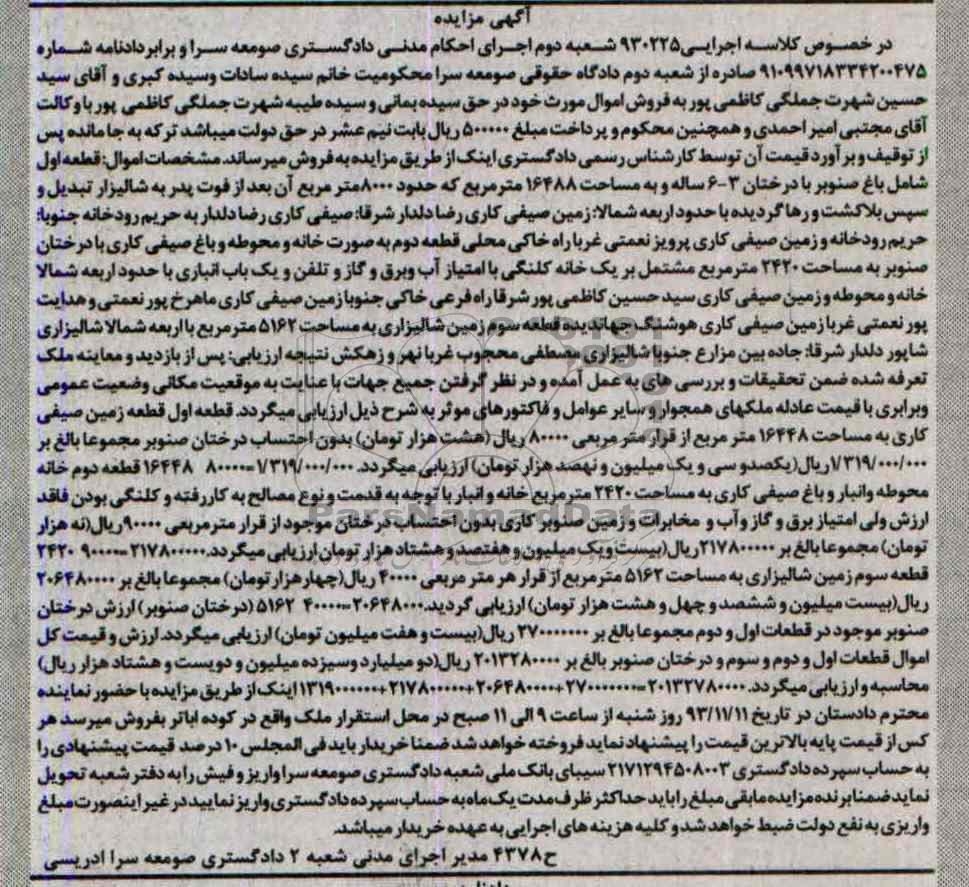 آگهی مزایده
در خصوص کلاسه اجرایی۹۳۰۲۲۵ شعبه دوم اجرای احکام مدنی دادگستری صومعه سرا و برابر دادنامه شماره
۹۱۰۹۹۷۱۸۳۳۴۲۰۰۴۷۵ صادره از شعبه دوم دادگاه حقوقی صومعه سرا محکومیت خانم سیده سادات وسیده کبری و آقای سید
حسین شهرت جملگی کاظمی پور به فروش اموال مورث خود در حق سیده بمانی و سیده طیبه شهرت جملگی کاظمی پور با وکالت
آقای مجتبی امیر احمدی و همچنین محکوم و پرداخت مبلغ ۵۰۰۰۰۰ ریال بابت نیم عشر در حق دولت میباشد ترکه به جا مانده پس
از توقیف و برآورد قیمت آن توسط کارشناس رسمی دادگستری اینک از طریق مزایده به فروش میرساند. مشخصات اموال: قطعه اول
شامل باغ صنوبر با درختان ۳-۶ ساله و به مساحت ۱۶۴۸۸ مترمربع که حدود ۸۰۰۰متر مربع آن بعد از فوت پدر به شالیزار تبدیل و
سپس بلاکشت و رها گردیده با حدود اربعه شمالا: زمین صیفی کاری رضا دلدار شرقا: صیفی کاری رضا دلدار به حریم رودخانه جنوبا:
حریم رودخانه و زمین صیفی کاری پرویز نعمتی غربا راه خاکی محلی قطعه دوم به صورت خانه و محوطه و باغ صیفی کاری با درختان
صنوبر به مساحت ۲۴۲۰ مترمربع مشتمل بر یک خانه کلنگی با امتیاز آب وبرق و گاز و تلفن و یک باب انباری با حدود اربعه شمالا
خانه و محوطه و زمین صیفی کاری سید حسین کاظمی پور شرقا راه فرعی خاکی جنوبا زمین صیفی کاری ماهرخ پور نعمتی و هدایت
پور نعمتی غربا زمین صیفی کاری هوشنگ جهاندیده قطعه سوم زمین شالیزاری به مساحت ۵۱۶۲ مترمربع با اربعه شمالا شالیزاری
شاپور دلدار شرقا: جاده بین مزارع جنوبا شالیزاری مصطفی محجوب غربا نهر و زهکش نتیجه ارزیابی: پس از بازدید و معاینه ملک
تعرفه شده ضمن تحقیقات و بررسی های به عمل آمده و در نظر گرفتن جمیع جهات با عنایت به موقعیت مکانی وضعیت عمومی
وبرابری با قیمت عادله ملکهای همجوار و سایر عوامل و فاکتورهای موثر به شرح ذیل ارزیابی میگردد. قطعه اول قطعه زمین صیفی
کاری به مساحت ۱۶۴۴۸ متر مربع از قرار متر مربعی ۸۰۰۰۰ ریال (هشت هزار تومان) بدون احتساب درختان صنوبر مجموعا بالغ بر
۱/۳۱۹/۰۰۰/۰۰۰ریال(یکصدو سی و یک میلیون و نهصد هزار تومان) ارزیابی میگردد. ۱/۳۱۹/۰۰۰/۰۰۰=۸۰۰۰۰ ۱۶۴۴۸ قطعه دوم خانه
محوطه وانبار و باغ صیفی کاری به مساحت ۲۴۲۰ مترمربع خانه و انبار با توجه به قدمت و نوع مصالح به کار رفته و کلنگی بودن فاقد
ارزش ولی امتیاز برق و گاز و آب و مخابرات و زمین صنوبر کاری بدون احتساب درختان موجود از قرار مترمربعی ۹۰۰۰۰ریال(نه هزار
تومان) مجموعا بالغ بر ۲۱۷۸۰۰۰۰۰ریال(بیست و یک میلیون و هفتصد و هشتاد هزار تومان ارزیابی میگردد.۲۱۷۸۰۰۰۰۰=۹۰۰۰۰ ۲۴۲۰
قطعه سوم زمین شالیزاری به مساحت ۵۱۶۲ مترمربع از قرار هر متر مربعی ۴۰۰۰۰ ریال(چهار هزار تومان) مجموعا بالغ بر ۲۰۶۴۸۰۰۰۰
ریال(بیست میلیون و ششصد و چهل و هشت هزار تومان) ارزیابی گردید.۲۰۶۴۸۰۰۰=۴۰۰۰۰ ۵۱۶۲ (درختان صنوبر) ارزش درختان
صنوبر موجود در قطعات اول و دوم مجموعا بالغ بر ۲۷۰۰۰۰۰۰۰ ریال(بیست و هفت میلیون تومان) ارزیابی میگردد. ارزش و قیمت کل
اموال قطعات اول و دوم و سوم و درختان صنوبر بالغ بر ۲۰۱۳۲۸۰۰۰۰ ریال(دو میلیارد وسیزده میلیون و دویست و هشتاد هزار ریال)
محاسبه و ارزیابی میگردد. ۲۰۱۳۲۷۸۰۰۰۰=۲۷۰۰۰۰۰۰۰+۲۰۶۴۸۰۰۰۰+۲۱۷۸۰۰۰۰۰+۱۳۱۹۰۰۰۰۰۰ اینک از طریق مزایده با حضور نماینده
محترم دادستان در تاریخ ۹۳/۱۱/۱۱ روز شنبه از ساعت ۹ الی ۱۱ صبح در محل استقرار ملک واقع در کوده اباتر بفروش میرسد هر
کس از قیمت پایه بالاترین قیمت را پیشنهاد نماید فروخته خواهد شد ضمنا خریدار باید فی المجلس ۱۰ درصد قیمت پیشنهادی را
به حساب سپرده دادگستری ۲۱۷۱۲۹۴۵۰۸۰۰۳ سیبای بانک ملی شعبه دادگستری صومعه سرا واریز و فیش را به دفتر شعبه تحویل
نماید ضمنا برنده مزایده مابقی مبلغ را باید حداکثر ظرف مدت یک ماه به حساب سپرده دادگستری واریز نمایید در غیر اینصورت مبلغ
واریزی به نفع دولت ضبط خواهد شد و کلیه هزینه های اجرایی به عهده خریدار میباشد.
ح۴۳۷۸ مدیر اجرای مدنی شعبه ۲ دادگستری صومعه سرا ادریسی
ParsNamadData